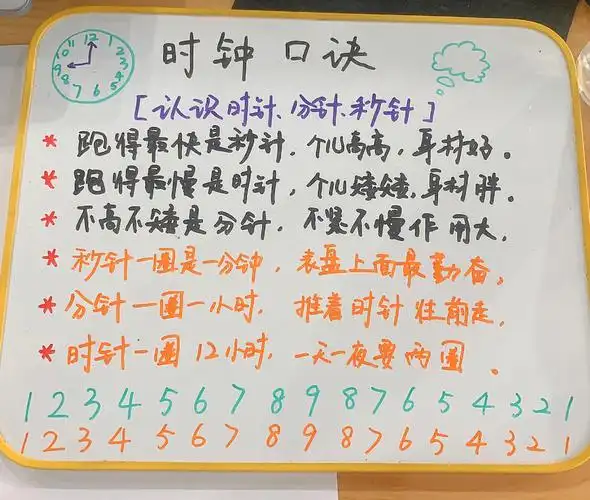 时钟口诀
12 1 2 3 4 5 6 7 8 9 10 11
[认识时针、分针、秒针]
* 跑得最快是秒针，个儿高高，身材好。
* 跑得最慢是时针，个儿矮矮，身材胖。
* 不高不矮是分针，不紧不慢作用大，
* 秒针一圈是一分钟，表盘上面最勤奋，
* 分针一圈一小时，推着时针往前走，
* 时针一圈12小时，一天一夜要两圈。
1 2 3 4 5 6 7 8 9 8 7 6 5 4 3 2 1
1 2 3 4 5 6 7 8 9 8 7 6 5 4 3 2 1